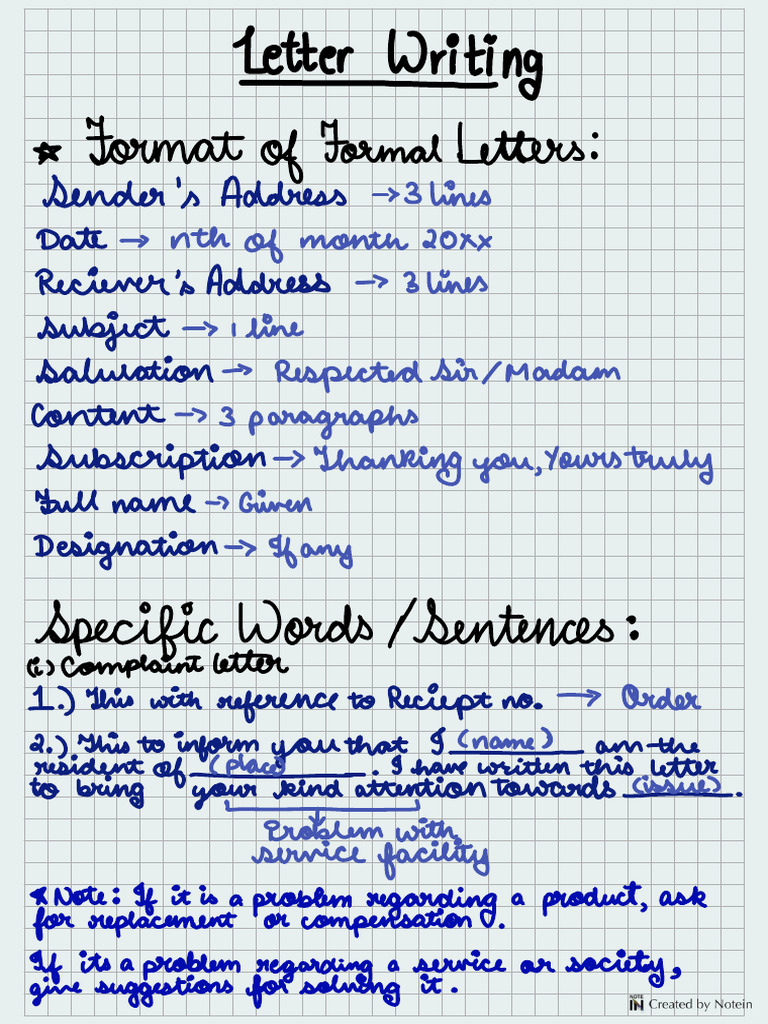 Letter Writing
☆ Format of Formal Letters:
Sender's Address → 3 lines
Date → nth of month 20xx
Reciever's Address → 3 lines
Subject → 1 line
Salutation → Respected Sir/Madam
Content → 3 paragraphs
Subscription → Thanking you, Yours truly
Full name → Given
Designation → If any
Specific Words/Sentences:
(i) Complaint letter
1.) This with reference to Reciept no. → Order
2.) This to inform you that I (name) am the
resident of (place). I have written this letter
to bring your kind attention towards (issue).
Problem with
service facility
* Note: If it is a problem regarding a product, ask
for replacement or compensation.
If its a problem regarding a service or society,
give suggestions for solving it.
NOTE IN Created by Notein